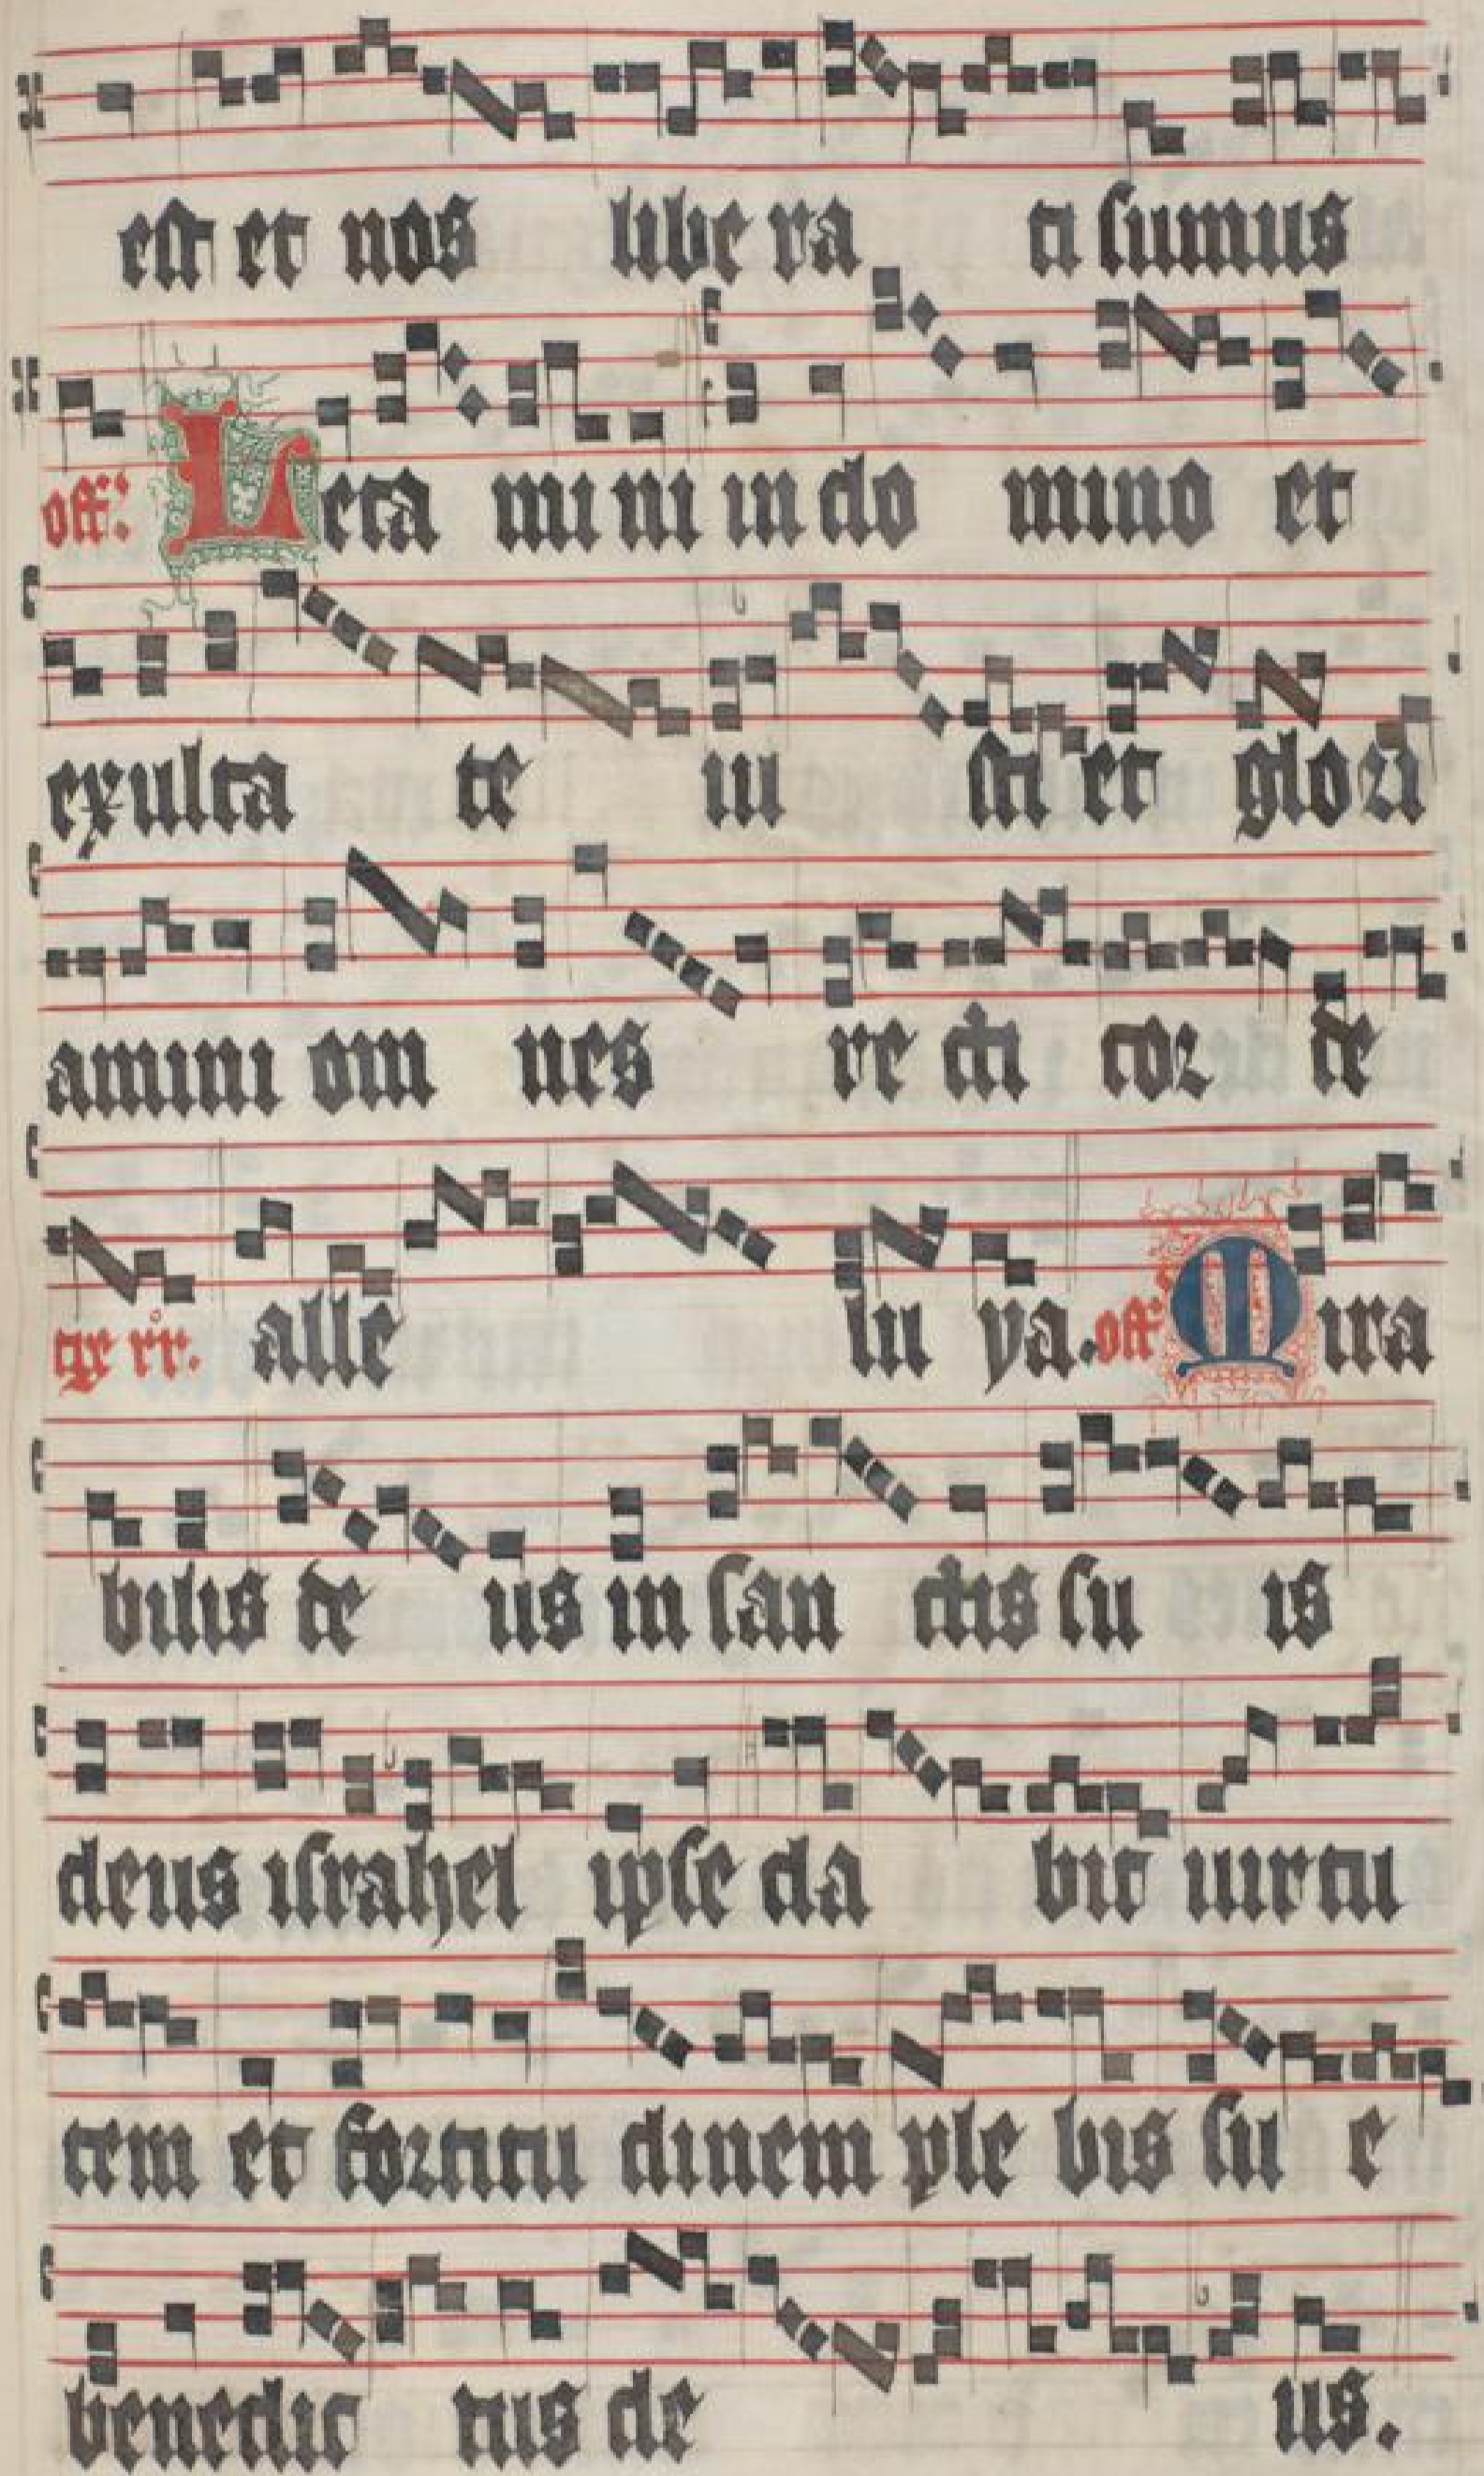 est et nos libe ra ti sumus
off. Leta mi ni in do mino et
exulta te iu sti et glori
amini om nes re cti cor de
alle lu ya. off Mira
bilis de us in san ctis su is
deus israhel ipse da bit uirtu
tem et fortitu dinem ple bis su e
benedic tus de us.